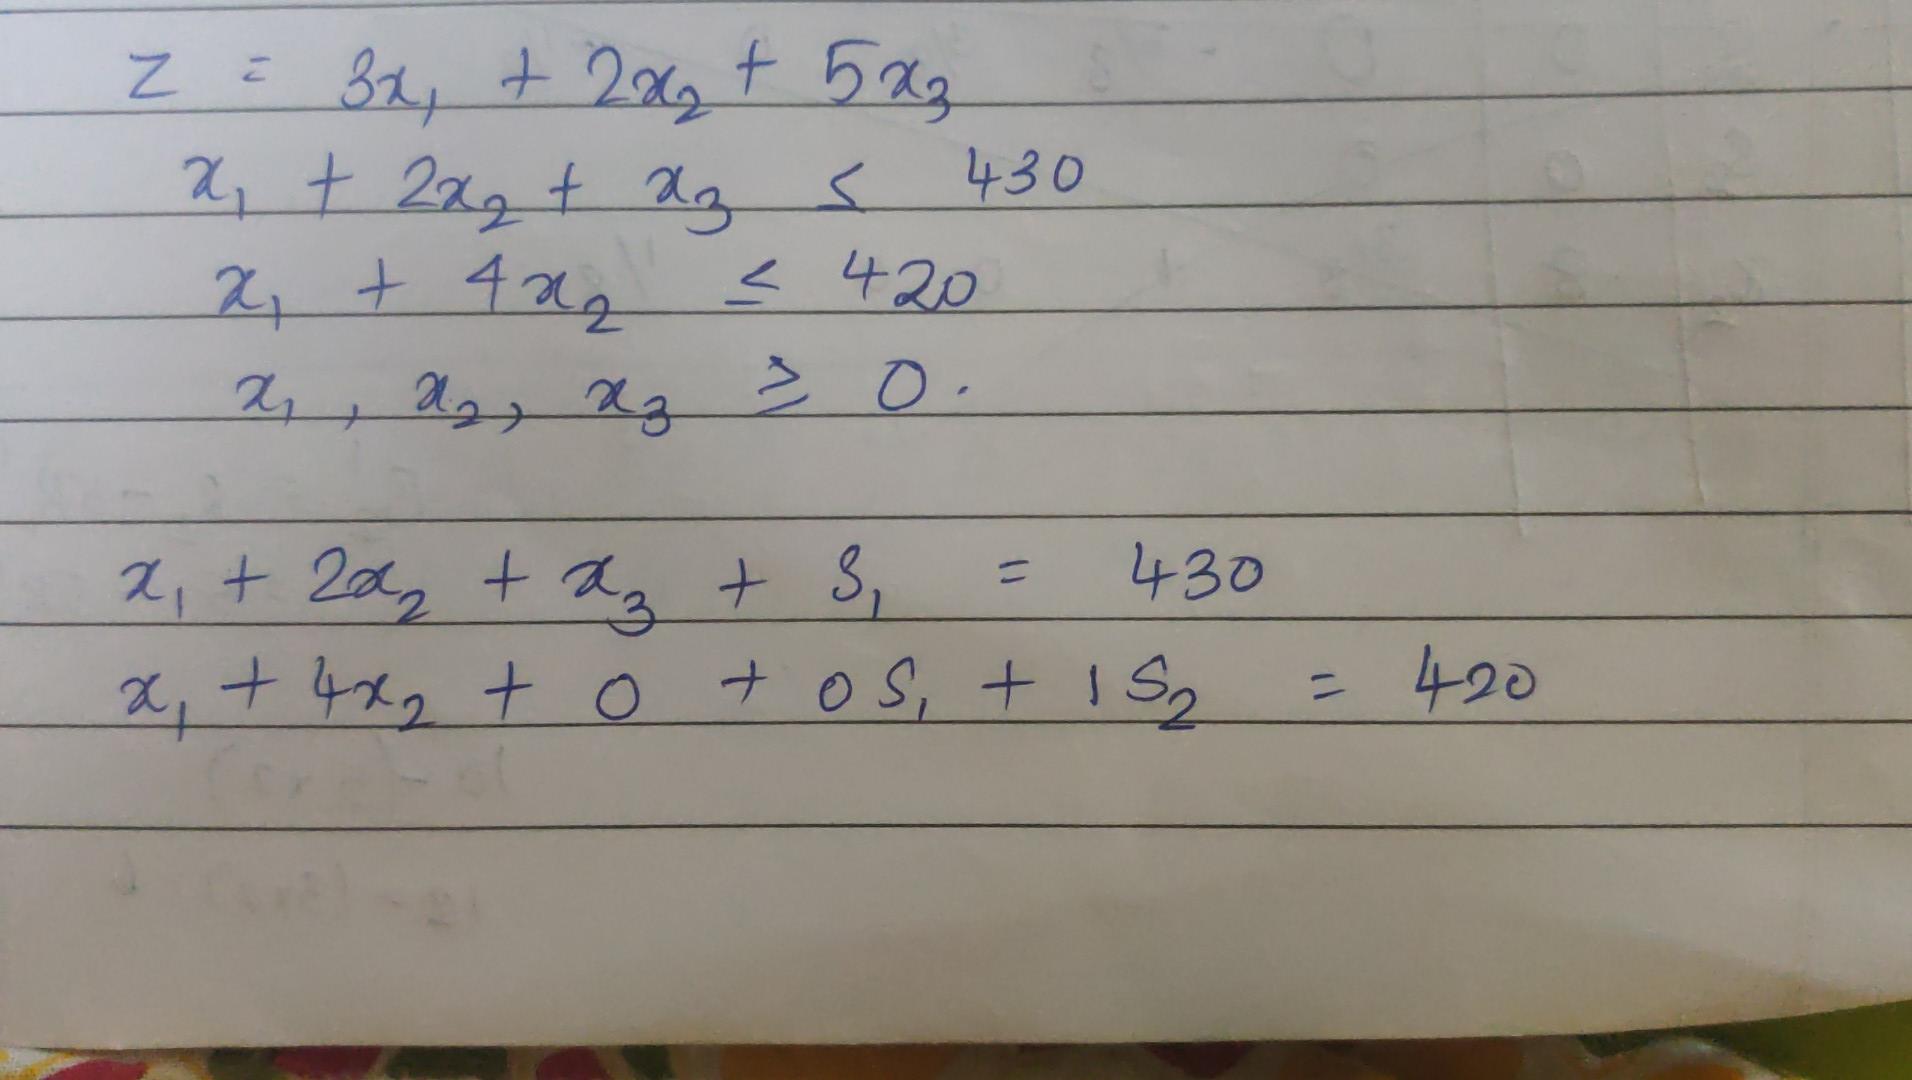 Z = 3x₁ + 2x₂ + 5x₃
x₁ + 2x₂ + x₃ ≤ 430
x₁ + 4x₂ ≤ 420
x₁, x₂, x₃ ≥ 0.
x₁ + 2x₂ + x₃ + S₁ = 430
x₁ + 4x₂ + 0 + 0S₁ + 1S₂ = 420